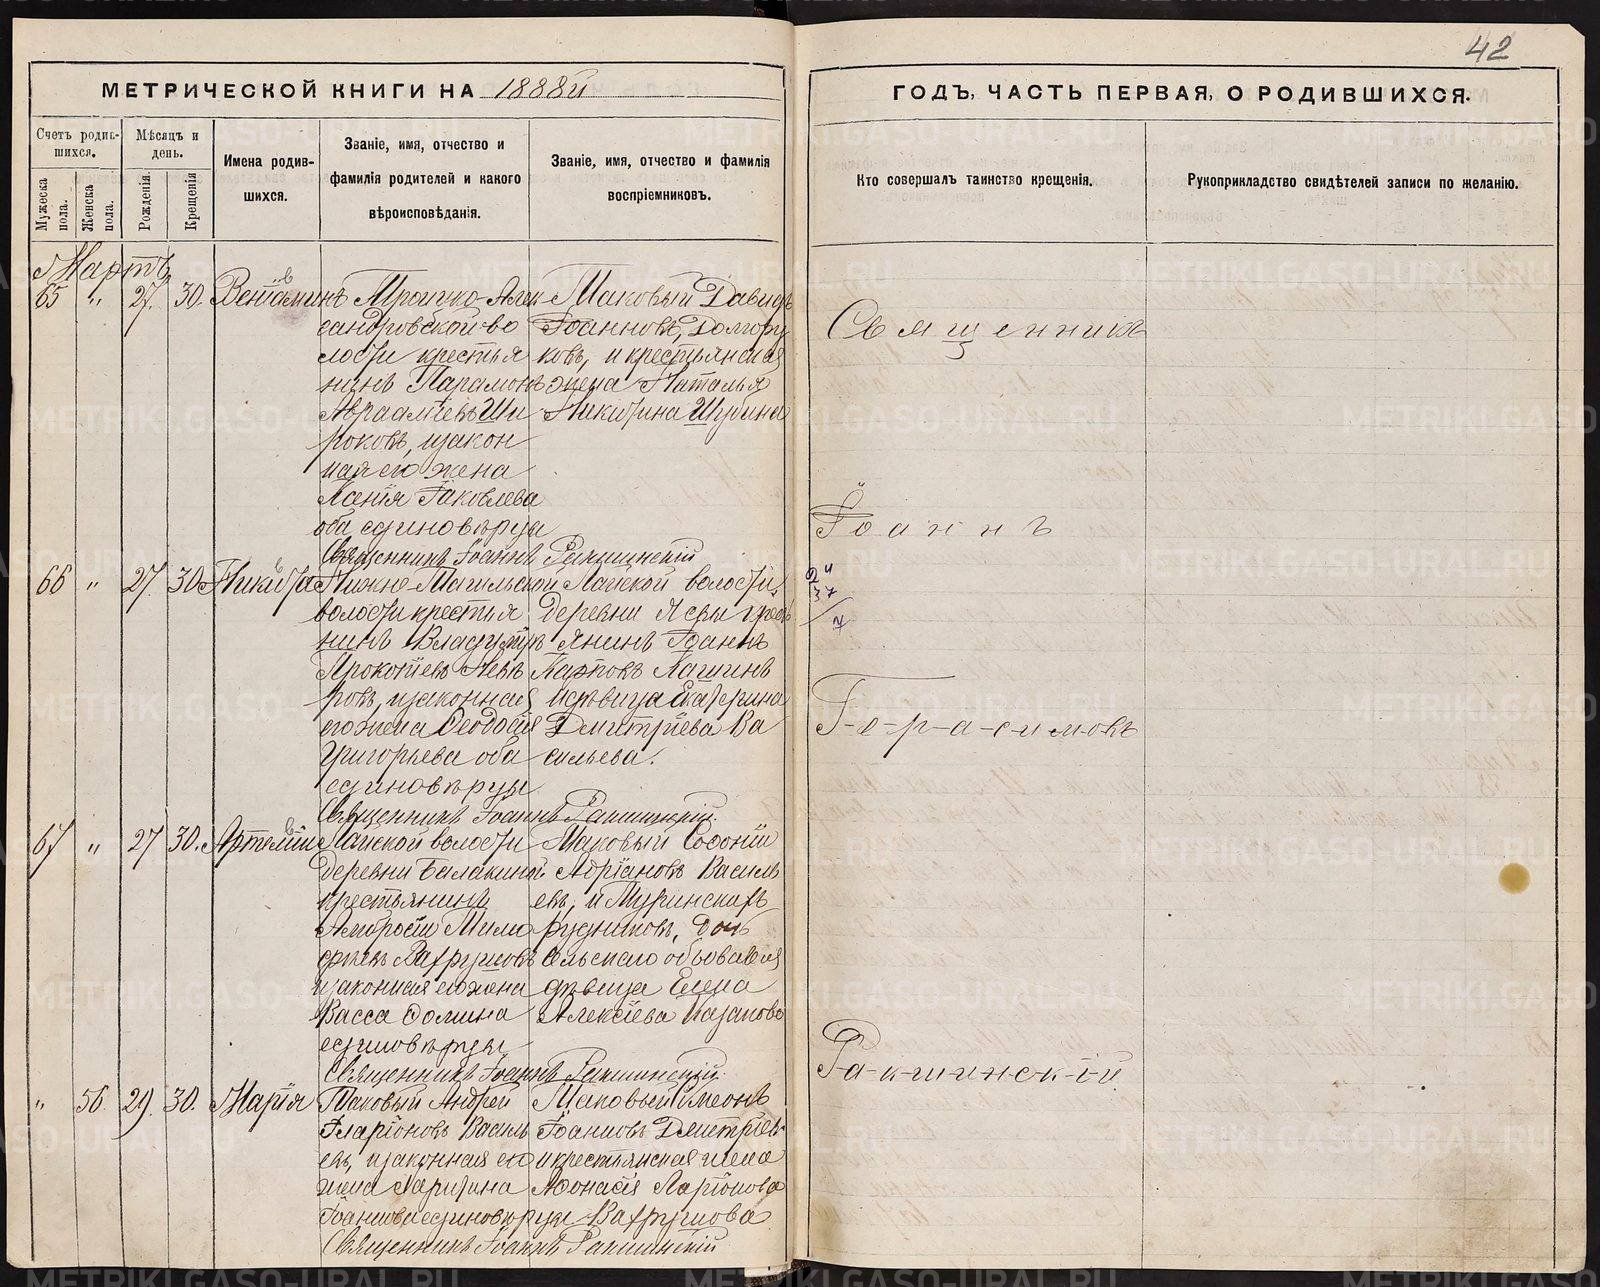 42
МЕТРИЧЕСКОЙ КНИГИ НА 1888й
ГОДЪ, ЧАСТЬ ПЕРВАЯ, О РОДИВШИХСЯ.
Счетъ родив-
шихся.
Мужеска пола.
Женска пола.
Мѣсяцъ и
день.
Рожденія.
Крещенія
Имена родив-
шихся.
Званіе, имя, отчество и
фамилія родителей и какого
вѣроисповѣданія.
Званіе, имя, отчество и фамилія
воспріемниковъ.
Кто совершалъ таинство крещенія.
Рукоприкладство свидѣтелей записи по желанію.
Мартъ
65 " 27. 30. Веніаминъ
Троицко-Алек
сандровской во
лости крестья
нинъ Парамонъ
Авраамiевъ Ши
роковъ, и закон
ная его жена
Ксенія Іаковлева
оба единовѣрцы
Таковый Давидъ
Іоанновъ, Долгору
ковъ, и крестьянская
жена Наталья
Никитина Шубина
Священникъ Іоаннъ Ракшинскій
66 " 27. 30. Никита
Нижне-Тагильской
волости крестья
нинъ Владиміръ
Прокопіевъ
ровъ, и законная
его жена Ѳеодосія
Григорьева оба
единовѣрцы
Лайской волости,
деревни кресть
янинъ Іоаннъ
Карповъ
дѣвица Екатерина
Дмитріева Ва
сильева.
Священникъ Іоаннъ Ракшинскій.
67 " 27 30. Артемій
Лайской волости
деревни Балакиной
крестьянинъ
Амвросій Тимо
фѣевъ Вахрушовъ
и законная его жена
Васса Фомина
единовѣрцы
Таковый Софоній
Адріановъ Василь
евъ, и Муринскихъ
рудниковъ, дочь
сельскаго обывателя
дѣвица Елена
Алексіева Казакова
Священникъ Іоаннъ Ракшинскій
" 56. 29. 30. Марія
Таковый Андрей
Иларіоновъ Василь
евъ, и законная его
жена Харитина
Іоаннова единовѣрцы
Таковый Симеонъ
Іоанновъ Дмитріев
и крестьянская жена
Афонасія Ларіонова
Вахрушова
Священникъ Іоаннъ Ракшинскій
Священникъ
Іоаннъ
Герасимовъ
Ракшинскій
METRIKI.GASO-URAL.RU